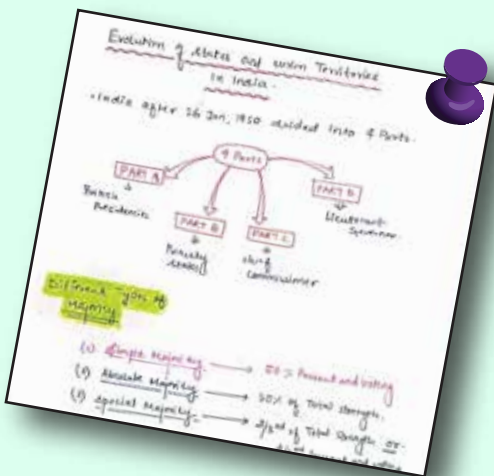 Evolution of states and union Territories
in India.
• India after 26 Jan, 1950 divided into 4 Parts.
4 Parts
PART A
British
Presidencies
PART B
Princely
states
PART C
chief
commissioner
PART D
Lieutenant
Governor
Different Types of
Majority
(1) Simple Majority → 50% Present and voting
(2) Absolute Majority → 50% of Total strength.
(3) Special Majority → 2/3rd of Total Strength or